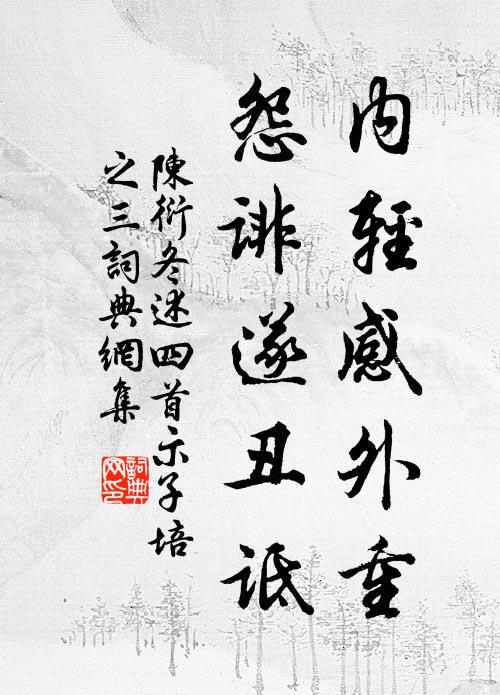 内輕感外重
怨誹遂丑詆
陳衍冬述四首示子培
之三詞典網集
詞典網印